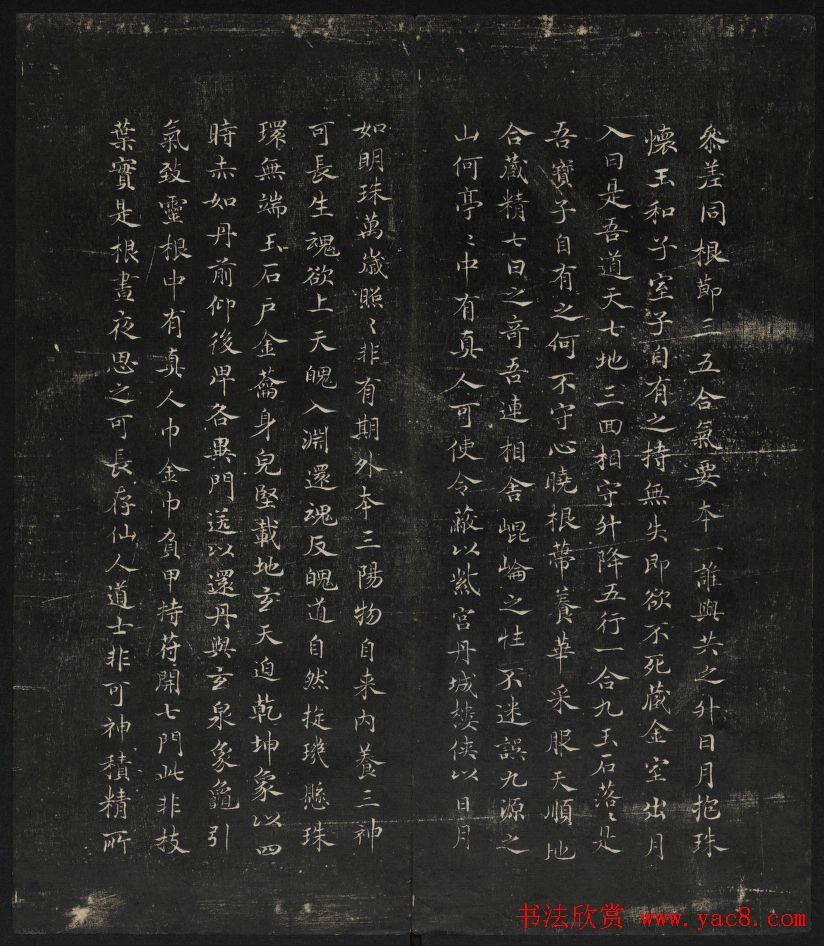 參差同根節三五合氣要本一誰與共之升日月抱珠
懷玉和子室子自有之持無失即欲不死藏金室出月
入日是吾道天七地三回相守升降五行一合九玉石落〻是
吾寶子自有之何不守心曉根蒂養華采服天順地
合藏精七日之奇吾連相舍崐崘之性不迷誤九源之
山何亭〻中有真人可使令蔽以紫宮丹城樓俠以日月
如明珠萬歲照〻非有期外本三陽物自来内養三神
可長生魂欲上天魄入淵還魂反魄道自然㨁璣懸珠
環無端玉石戶金蘥身皃堅載地玄天迫乾坤象以四
時赤如丹前仰後卑各異門送以還丹與玄泉象龜引
氣致靈根中有真人巾金巾負甲持苻開七門此非枝
葉實是根晝夜思之可長存仙人道士非可神積精所
书法欣赏 www.yac8.com